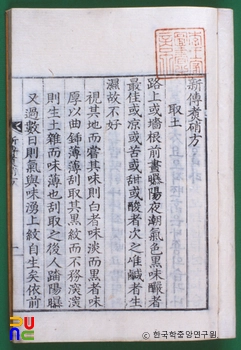 新傳煑硝方
取土
路上或墻根前晝曬陽夜潮氣色黑味釅者
最佳或凉或苦或甜或酸者次之唯鹹者生
濕故不好
視其地而嘗其味則白者味淡而黑者味
厚以曲錍薄薄刮取其黑紋而不務深深
則生土雜而味薄也刮取之後人踏陽曝
又過數日則氣與味湧上紋自生矣依前
한국학중앙연구원